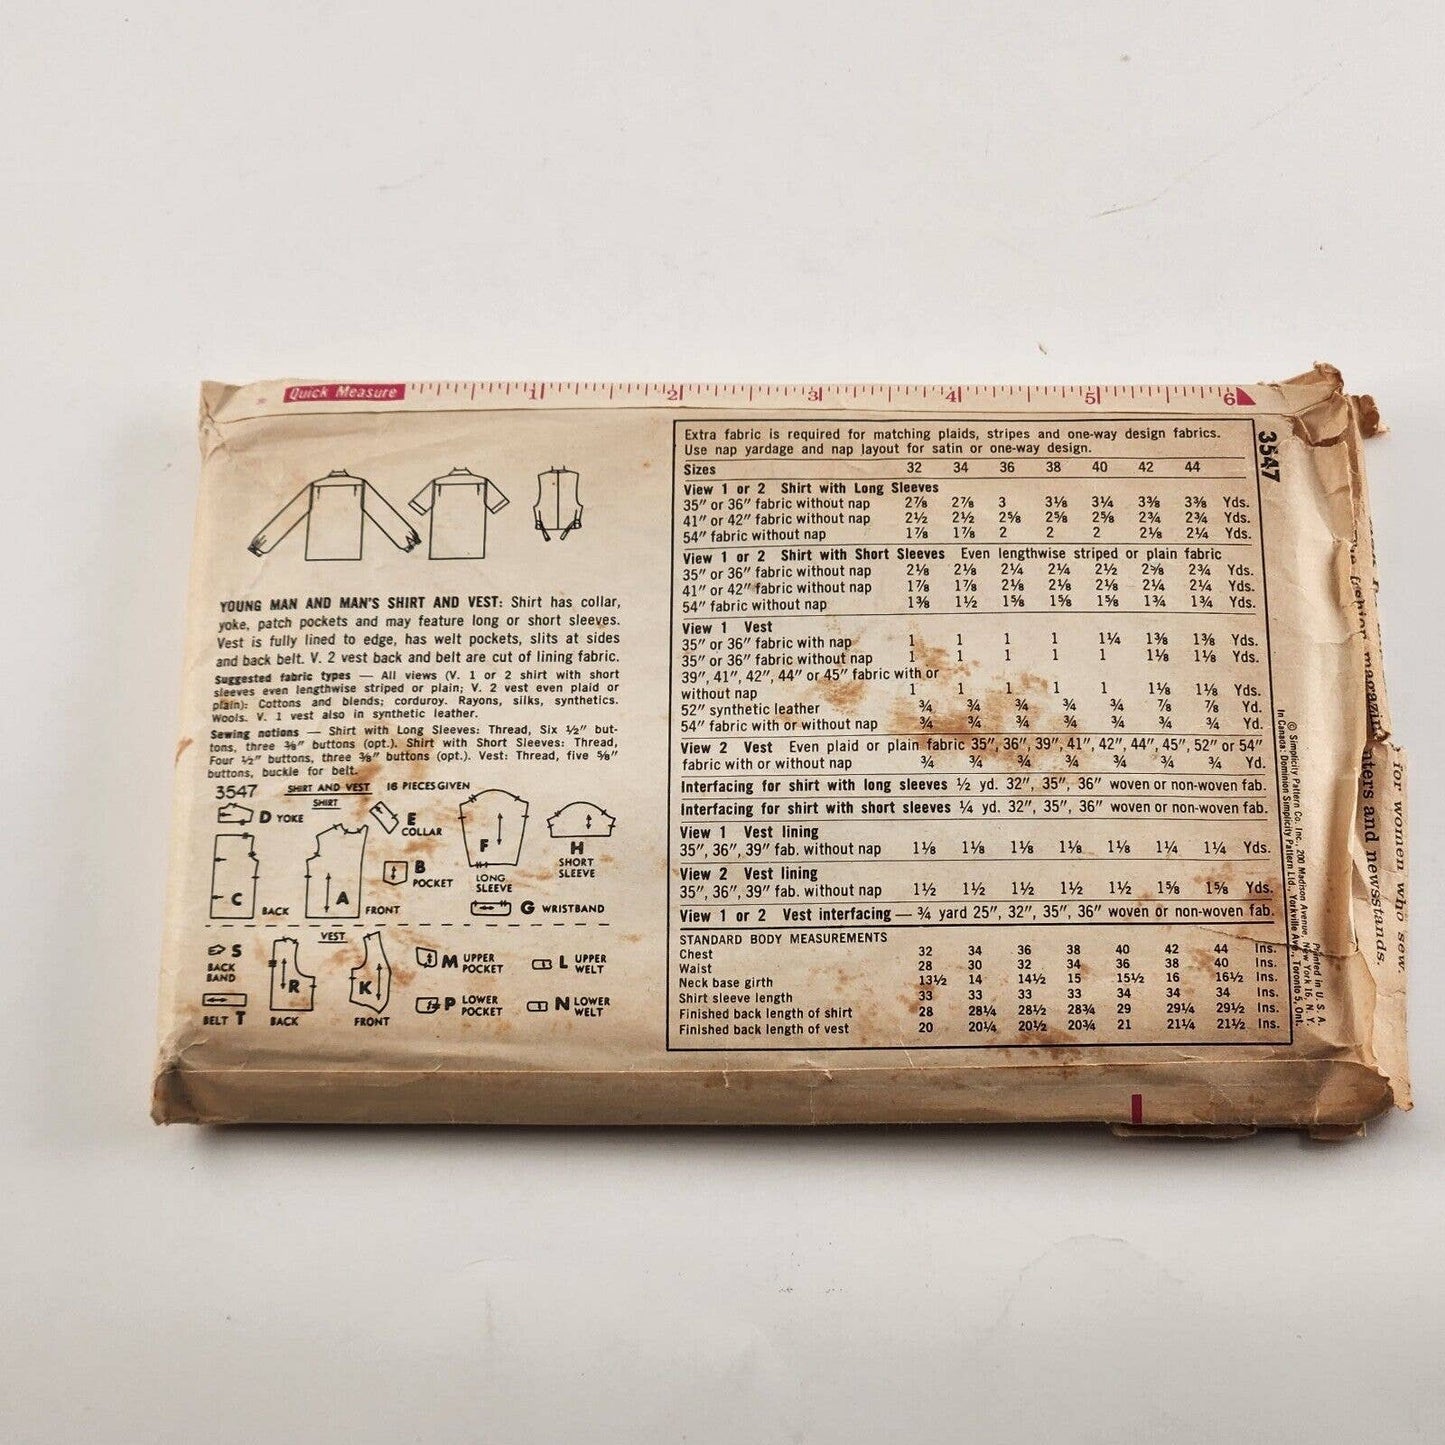 Quick Measure 1 2 3 4 5 6
YOUNG MAN AND MAN'S SHIRT AND VEST: Shirt has collar,
yoke, patch pockets and may feature long or short sleeves.
Vest is fully lined to edge, has welt pockets, slits at sides
and back belt. V. 2 vest back and belt are cut of lining fabric.
Suggested fabric types — All views (V. 1 or 2 shirt with short
sleeves even lengthwise striped or plain; V. 2 vest even plaid or
plain): Cottons and blends; corduroy. Rayons, silks, synthetics.
Wools. V. 1 vest also in synthetic leather.
Sewing notions — Shirt with Long Sleeves: Thread, Six ½" but-
tons, three ⅜" buttons (opt.). Shirt with Short Sleeves: Thread,
Four ½" buttons, three ⅜" buttons (opt.). Vest: Thread, five ⅝"
buttons, buckle for belt.
3547 SHIRT AND VEST 16 PIECES GIVEN
SHIRT
D YOKE
E COLLAR
F LONG SLEEVE
H SHORT SLEEVE
B POCKET
C BACK
A FRONT
G WRISTBAND
VEST
S BACK BAND
R BACK
K FRONT
M UPPER POCKET
L UPPER WELT
BELT T
P LOWER POCKET
N LOWER WELT
Extra fabric is required for matching plaids, stripes and one-way design fabrics.
Use nap yardage and nap layout for satin or one-way design.
Sizes 32 34 36 38 40 42 44
View 1 or 2 Shirt with Long Sleeves
35" or 36" fabric without nap 2⅞ 2⅞ 3 3⅛ 3¼ 3⅜ 3⅜ Yds.
41" or 42" fabric without nap 2½ 2½ 2⅝ 2⅝ 2⅝ 2¾ 2¾ Yds.
54" fabric without nap 1⅞ 1⅞ 2 2 2 2⅛ 2¼ Yds.
View 1 or 2 Shirt with Short Sleeves Even lengthwise striped or plain fabric
35" or 36" fabric without nap 2⅛ 2⅛ 2¼ 2¼ 2½ 2⅝ 2¾ Yds.
41" or 42" fabric without nap 1⅞ 1⅞ 2⅛ 2⅛ 2⅛ 2¼ 2¼ Yds.
54" fabric without nap 1⅜ 1½ 1⅝ 1⅝ 1⅝ 1¾ 1¾ Yds.
View 1 Vest
35" or 36" fabric with nap 1 1 1 1 1¼ 1⅜ 1⅜ Yds.
35" or 36" fabric without nap 1 1 1 1 1 1⅛ 1⅛ Yds.
39", 41", 42", 44" or 45" fabric with or
without nap 1 1 1 1 1 1⅛ 1⅛ Yds.
52" synthetic leather ¾ ¾ ¾ ¾ ¾ ⅞ ⅞ Yd.
54" fabric with or without nap ¾ ¾ ¾ ¾ ¾ ¾ ¾ Yd.
View 2 Vest Even plaid or plain fabric 35", 36", 39", 41", 42", 44", 45", 52" or 54"
fabric with or without nap ¾ ¾ ¾ ¾ ¾ ¾ ¾ Yd.
Interfacing for shirt with long sleeves ½ yd. 32", 35", 36" woven or non-woven fab.
Interfacing for shirt with short sleeves ¼ yd. 32", 35", 36" woven or non-woven fab.
View 1 Vest lining
35", 36", 39" fab. without nap 1⅛ 1⅛ 1⅛ 1⅛ 1⅛ 1¼ 1¼ Yds.
View 2 Vest lining
35", 36", 39" fab. without nap 1½ 1½ 1½ 1½ 1½ 1⅝ 1⅝ Yds.
View 1 or 2 Vest interfacing — ¾ yard 25", 32", 35", 36" woven or non-woven fab.
STANDARD BODY MEASUREMENTS
Chest 32 34 36 38 40 42 44 Ins.
Waist 28 30 32 34 36 38 40 Ins.
Neck base girth 13½ 14 14½ 15 15½ 16 16½ Ins.
Shirt sleeve length 33 33 33 33 34 34 34 Ins.
Finished back length of shirt 28 28¼ 28½ 28¾ 29 29¼ 29½ Ins.
Finished back length of vest 20 20¼ 20½ 20¾ 21 21¼ 21½ Ins.
3547
© Simplicity Pattern Co. Inc. 200 Madison Avenue, New York 16, N. Y.
In Canada: Dominion Simplicity Pattern Ltd., Yorkville Ave., Toronto 5, Ont.
Printed in U. S. A.
for women who sew.
and newsstands.